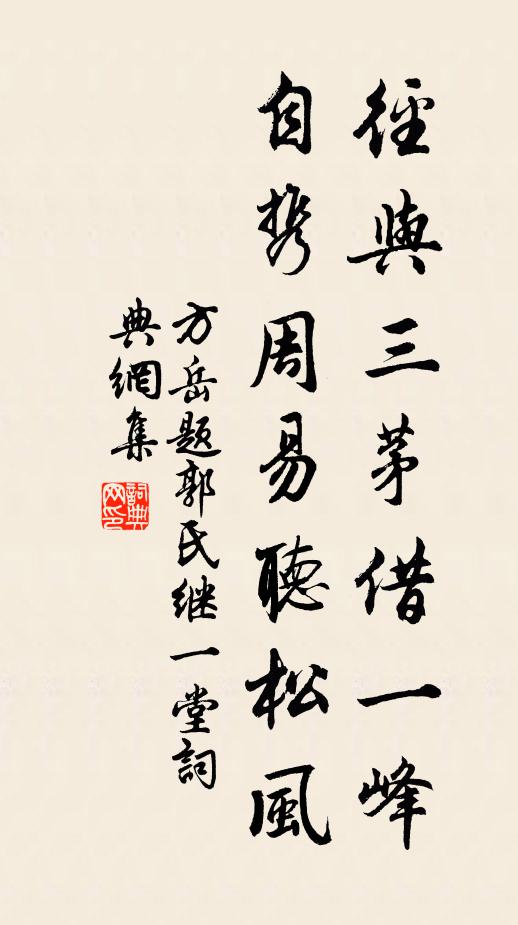 徑與三茅借一峰
自携周易聽松風
方岳題郭氏継一堂詞
典網集
詞典
网印